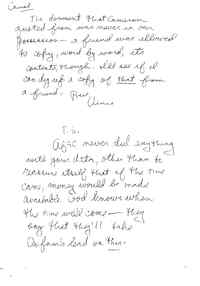 The document that Cameron
quoted from was never in our
possession - a friend was allowed
to copy, word by word, its
contents, though. I'll see if I
can dig up a copy of that from
a friend.
P.S.
never did anything
with your data, other than to
reassure itself that if the time
came, money would be made
available. God knows when
the time will come - they
say that they'll take
on this.